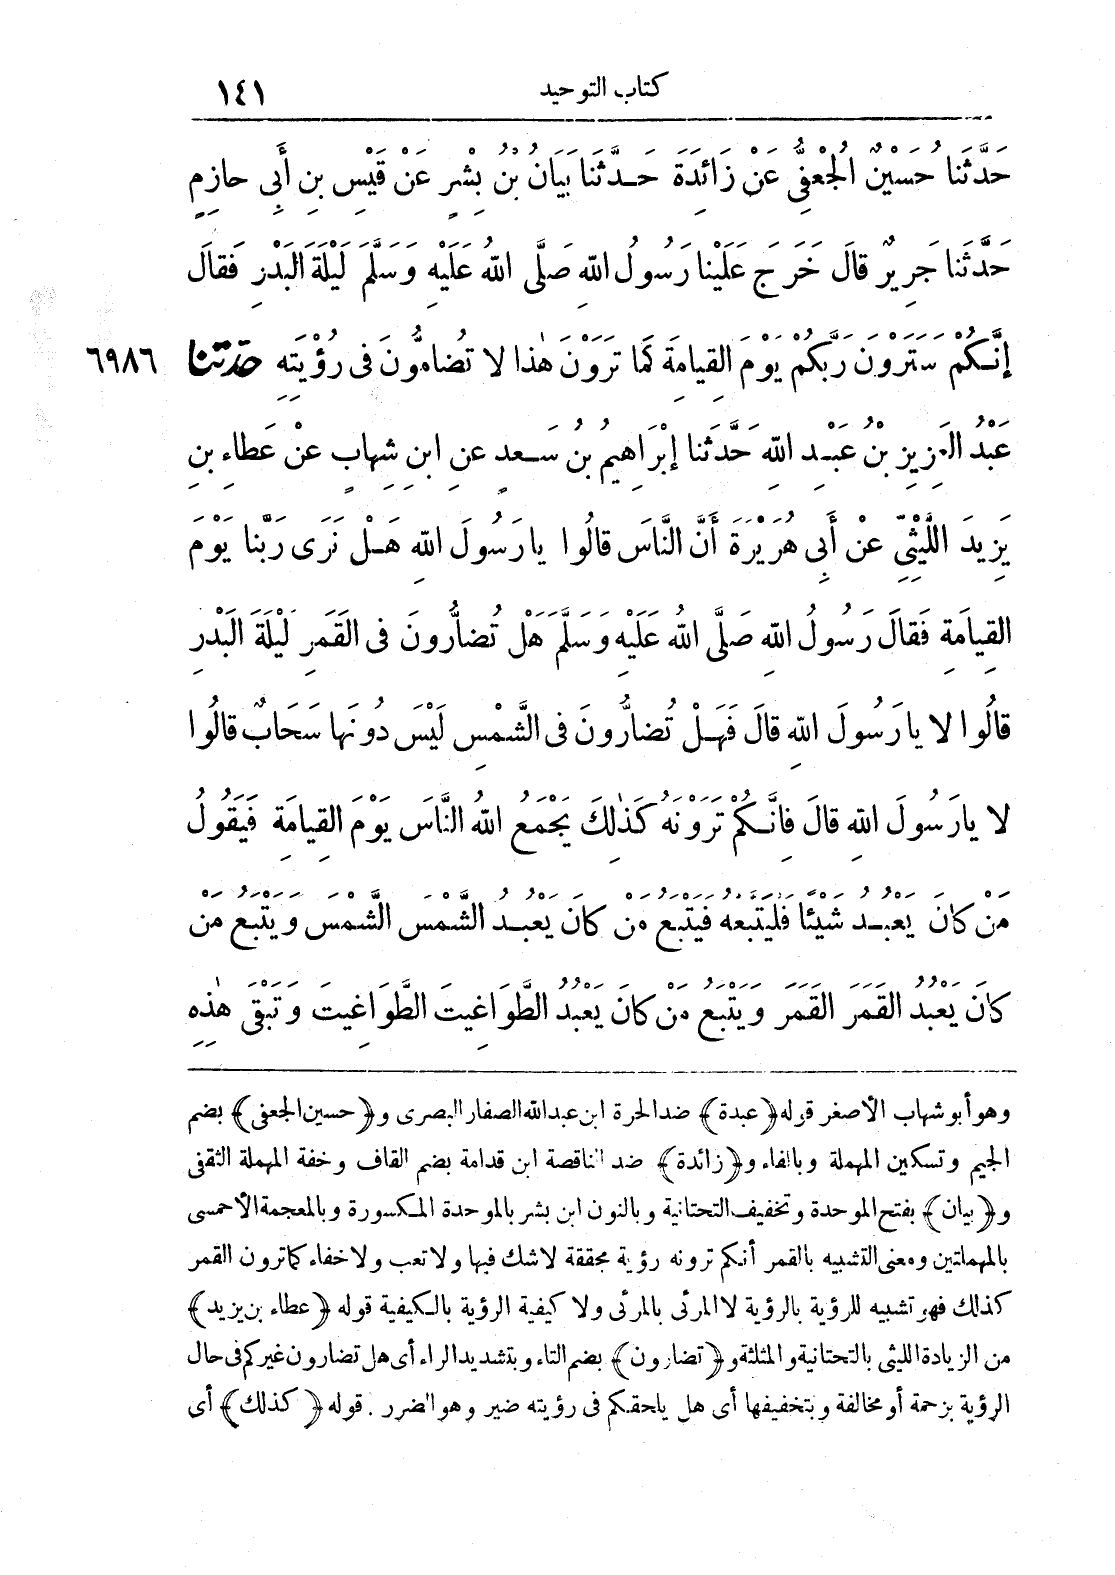 كتاب التوحيد ١٤١
حَدَّثَنَا حُسَيْنٌ الْجُعْفِىُّ عَنْ زَائِدَةَ حَدَّثَنَا بَيَانُ بْنُ بِشْرٍ عَنْ قَيْسِ بنِ أَبِى حازِمٍ
حَدَّثَنا جَرِيرٌ قالَ خَرَجَ عَلَيْنا رَسُولُ اللهِ صَلَّى اللهُ عَلَيْهِ وَسَلَّمَ لَيْلَةَ البَدْرِ فَقالَ
إنَّكُمْ سَتَرَوْنَ رَبَّكُمْ يَوْمَ القِيامَةِ كَمَا تَرَوْنَ هٰذا لا تُضامُّونَ فى رُؤْيَتِهِ حدثنا ٦٩٨٦
عَبْدُ العَزِيزِ بْنُ عَبْدِ اللهِ حَدَّثَنا إِبْرَاهِيمُ بنُ سَعدٍ عنِ ابنِ شِهابٍ عنْ عَطاءِ بنِ
يَزِيدَ اللَّيْثِىِّ عنْ أَبِى هُرَيْرَةَ أَنَّ النَّاسَ قالُوا يارَسُولَ اللهِ هَلْ نَرَى رَبَّنا يَوْمَ
القِيامَةِ فَقالَ رَسُولُ اللهِ صَلَّى اللهُ عَلَيْهِ وَسَلَّمَ هَلْ تُضارُّونَ فى القَمَرِ لَيْلَةَ البَدْرِ
قالُوا لا يارَسُولَ اللهِ قالَ فَهَلْ تُضارُّونَ فى الشَّمْسِ لَيْسَ دُونَها سَحَابٌ قالُوا
لا يارَسُولَ اللهِ قالَ فإنَّكُمْ تَرَوْنَهُ كَذٰلِكَ يَجْمَعُ اللهُ النَّاسَ يَوْمَ القِيامَةِ فَيَقُولُ
مَنْ كانَ يَعْبُدُ شَيْئًا فَلْيَتَّبِعْهُ فَيَتْبَعُ مَنْ كانَ يَعْبُدُ الشَّمْسَ الشَّمْسَ وَيَتْبَعُ مَنْ
كانَ يَعْبُدُ القَمَرَ القَمَرَ وَيَتْبَعُ مَنْ كانَ يَعْبُدُ الطَّوَاغِيتَ الطَّوَاغِيتَ وَتَبْقَى هٰذِهِ
وهو أبو شهاب الأصغر قوله ﴿عبدة﴾ ضد الحرة ابن عبد الله الصفار البصرى و﴿حسين الجعفى﴾ بضم
الجيم وتسكين المهملة وبالفاء و﴿زائدة﴾ ضد الناقصة ابن قدامة بضم القاف وخفة المهملة الثقفى
و﴿بيان﴾ بفتح الموحدة وتخفيف التحتانية وبالنون ابن بشر بالموحدة المكسورة وبالمعجمة الأحمسى
بالمهملتين ومعنى التشبيه بالقمر أنكم ترونه رؤية محققة لا شك فيها ولا تعب ولا خفاء كما ترون القمر
كذلك فهو تشبيه للرؤية بالرؤية لا المرئى بالمرئى ولا كيفية الرؤية بالكيفية قوله ﴿عطاء بن يزيد﴾
من الزيادة الليثى بالتحتانية والمثلثة و﴿تضارون﴾ بضم التاء وبتشديد الراء أى هل تضارون غيركم فى حال
الرؤية بزحمة أو مخالفة وبتخفيفها أى هل يلحقكم فى رؤيته ضير وهو الضرر . قوله ﴿كذلك﴾ أى